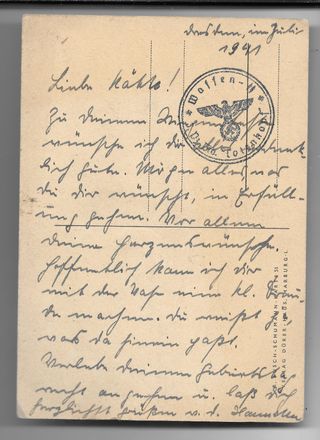 Dresden, im Juli
1941
Liebe Käthe!
Zu deinem
wünsche ich dir
lich Gute. Mögen alles was
du dir wünscht, in Erfüll-
ung gehen. Vor allem
deine Herzenswünsche.
Hoffentlich kann ich dir
mit der Vase eine kl. Freu-
de machen. Du weißt ja
was da hinein paßt.
Verlebe deinen Geburtstag
recht angenehm u. laß dich
herzlichst grüßen v. d.
Waffen-SS